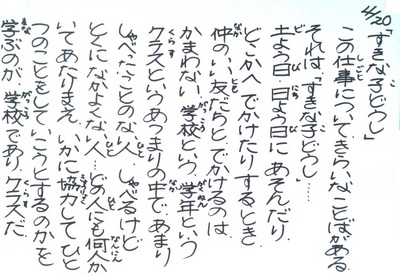 4/20「すきな子どうし」
この仕事について、きらいなことばがある。
それは「すきな子どうし」……
土よう日、日よう日にあそんだり、
どこかへでかけたりするとき、
仲のいい友だちとでかけるのは、
かまわない。学校という、学年という
クラスというあつまりの中で、あまり
しゃべったことのない人、しゃべるけど
とくになかよくない人…どの人にも何人か
いてあたりまえ。いかに協力してひと
つのことをしていこうとするのかを
学ぶのが、学校であり、クラスだ。